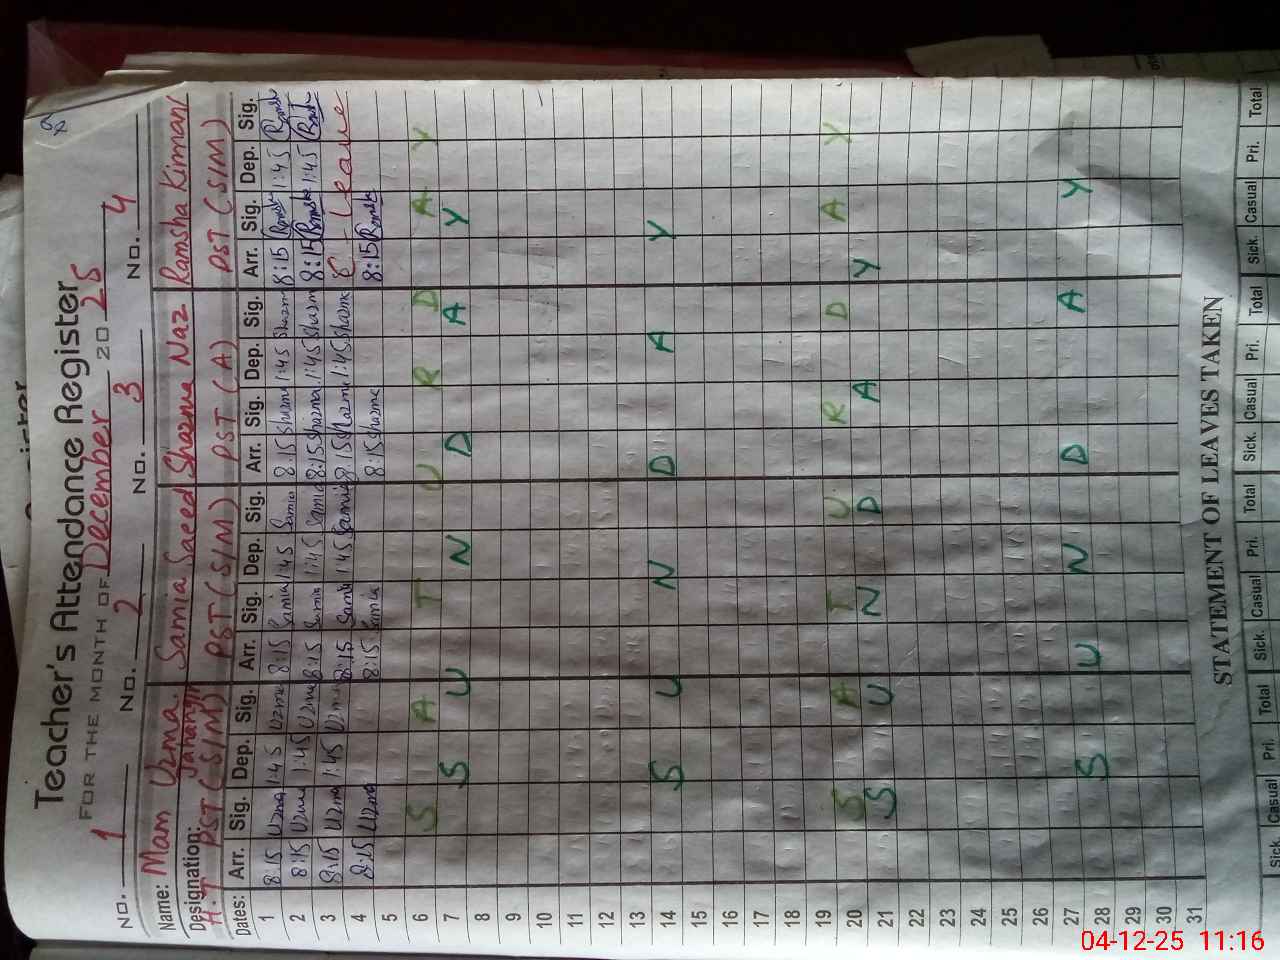 Teacher's Attendance Register
FOR THE MONTH OF December 2025
No. 1 No. 2 No. 3 No. 4
Name: Mam Uzma Jahangir Samia Saeed Shazma Naz Ramsha Kinnani
Designation: H.T PST (S/M) PST (S/M) PST (A) PST (S/M)
Dates: Arr. Sig. Dep. Sig. Arr. Sig. Dep. Sig. Arr. Sig. Dep. Sig. Arr. Sig. Dep. Sig.
1 8:15 Uzma 1:45 Uzma 8:15 Samia 1:45 Samia 8:15 Shazma 1:45 Shazma 8:15 Ramsha 1:45 Ramsha
2 8:15 Uzma 1:45 Uzma 8:15 Samia 1:45 Samia 8:15 Shazma 1:45 Shazma 8:15 Ramsha 1:45 Ramsha
3 8:15 Uzma 1:45 Uzma 8:15 Samia 1:45 Samia 8:15 Shazma 1:45 Shazma Leave
4 8:15 Uzma 8:15 Samia 8:15 Shazma 8:15 Ramsha
5
6 SATURDAY
7 SUNDAY
8
9
10
11
12
13
14 SUNDAY
15
16
17
18
19
20 SATURDAY
21 SUNDAY
22
23
24
25
26
27
28 SUNDAY
29
30
31
STATEMENT OF LEAVES TAKEN
Sick. Casual Pri. Total Sick. Casual Pri. Total Sick. Casual Pri. Total Sick. Casual Pri. Total
04-12-25 11:16